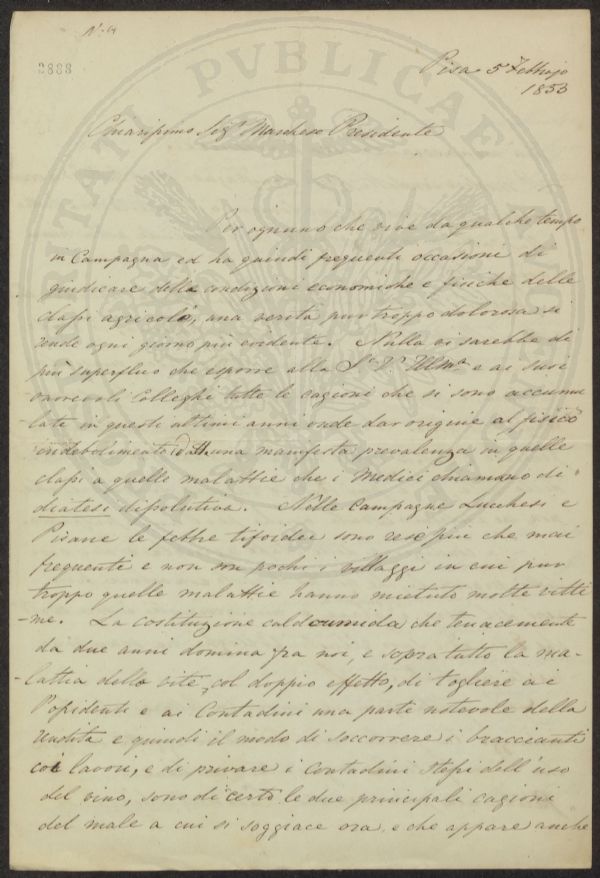 N. 4
2888
PUBLICAE
Pisa 5 Febbrajo
1853
Chiarissimo Sigr. Marchese Presidente
Per ognuno che vive da qualche tempo
in Campagna ed ha quindi frequenti occasioni di
giudicare delle condizioni economiche e fisiche delle
classi agricole, una verità pur troppo dolorosa si
rende ogni giorno più evidente. Nulla vi sarebbe di
più superfluo che esporre alla S. V. Illma e ai suoi
onorevoli Colleghi tutte le cagioni che si sono accumu
-late in questi ultimi anni onde dar origine al fisico
indebolimento una manifesta prevalenza in quelle
classi a quelle malattie che i Medici chiamano di
diatesi dissolutiva. Nelle Campagne Lucchesi e
Pisane le febbre tifoidee sono rese più che mai
frequenti e non son pochi i villaggi in cui pur
troppo quelle malattie hanno mietuto molte vitti
-me. La costituzione caldoumida che tenacemente
da due anni domina fra noi, e sopratutto la ma-
-lattia delle vite, col doppio effetto, di togliere ai
Possidenti e ai Contadini una parte notevole della
vendita e quindi il modo di soccorrere i braccianti
coi lavori, e di privare i Contadini stessi dell'uso
del vino, sono di certo le due principali cagioni
del male a cui si soggiace ora, e che appare anche